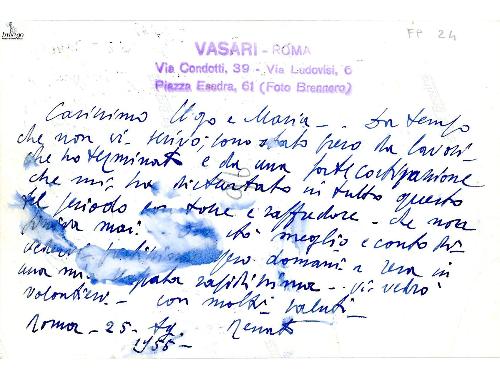 Imago
FP 24
VASARI - ROMA
Via Condotti, 39 - Via Ludovisi, 6
Piazza Esedra, 61 (Foto Brennero)
Carissimo Ugo e Maria - Da tempo
che non vi scrivo; sono stato preso da lavori
che ho terminato e da una forte costipazione
che mi ha disturbato in tutto questo
periodo con tosse e raffredore - che non
finiva mai sto meglio e conto di
domani a sera in
una mi rapidissima - vi vedrò
volontieri - con molti saluti -
Roma - 25 - Renato
1955 -